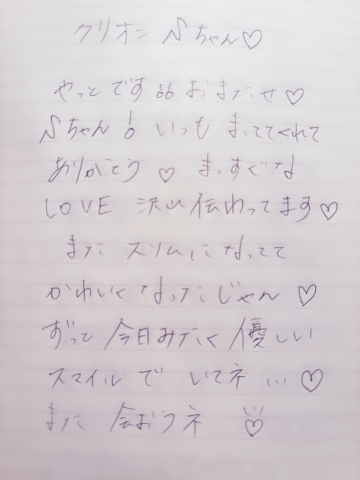 クリオン Sちゃん♡
やっとです66 おまたせ♡
Sちゃん! いつも まっててくれて
ありがとう ♡ まっすぐな
LOVE 沢山伝わってます♡
また スリムになってて
かわいくなったじゃん ♡
ずっと 今日みたく 優しい
スマイル で いてネ ... ♡
また 会おうネ ♡